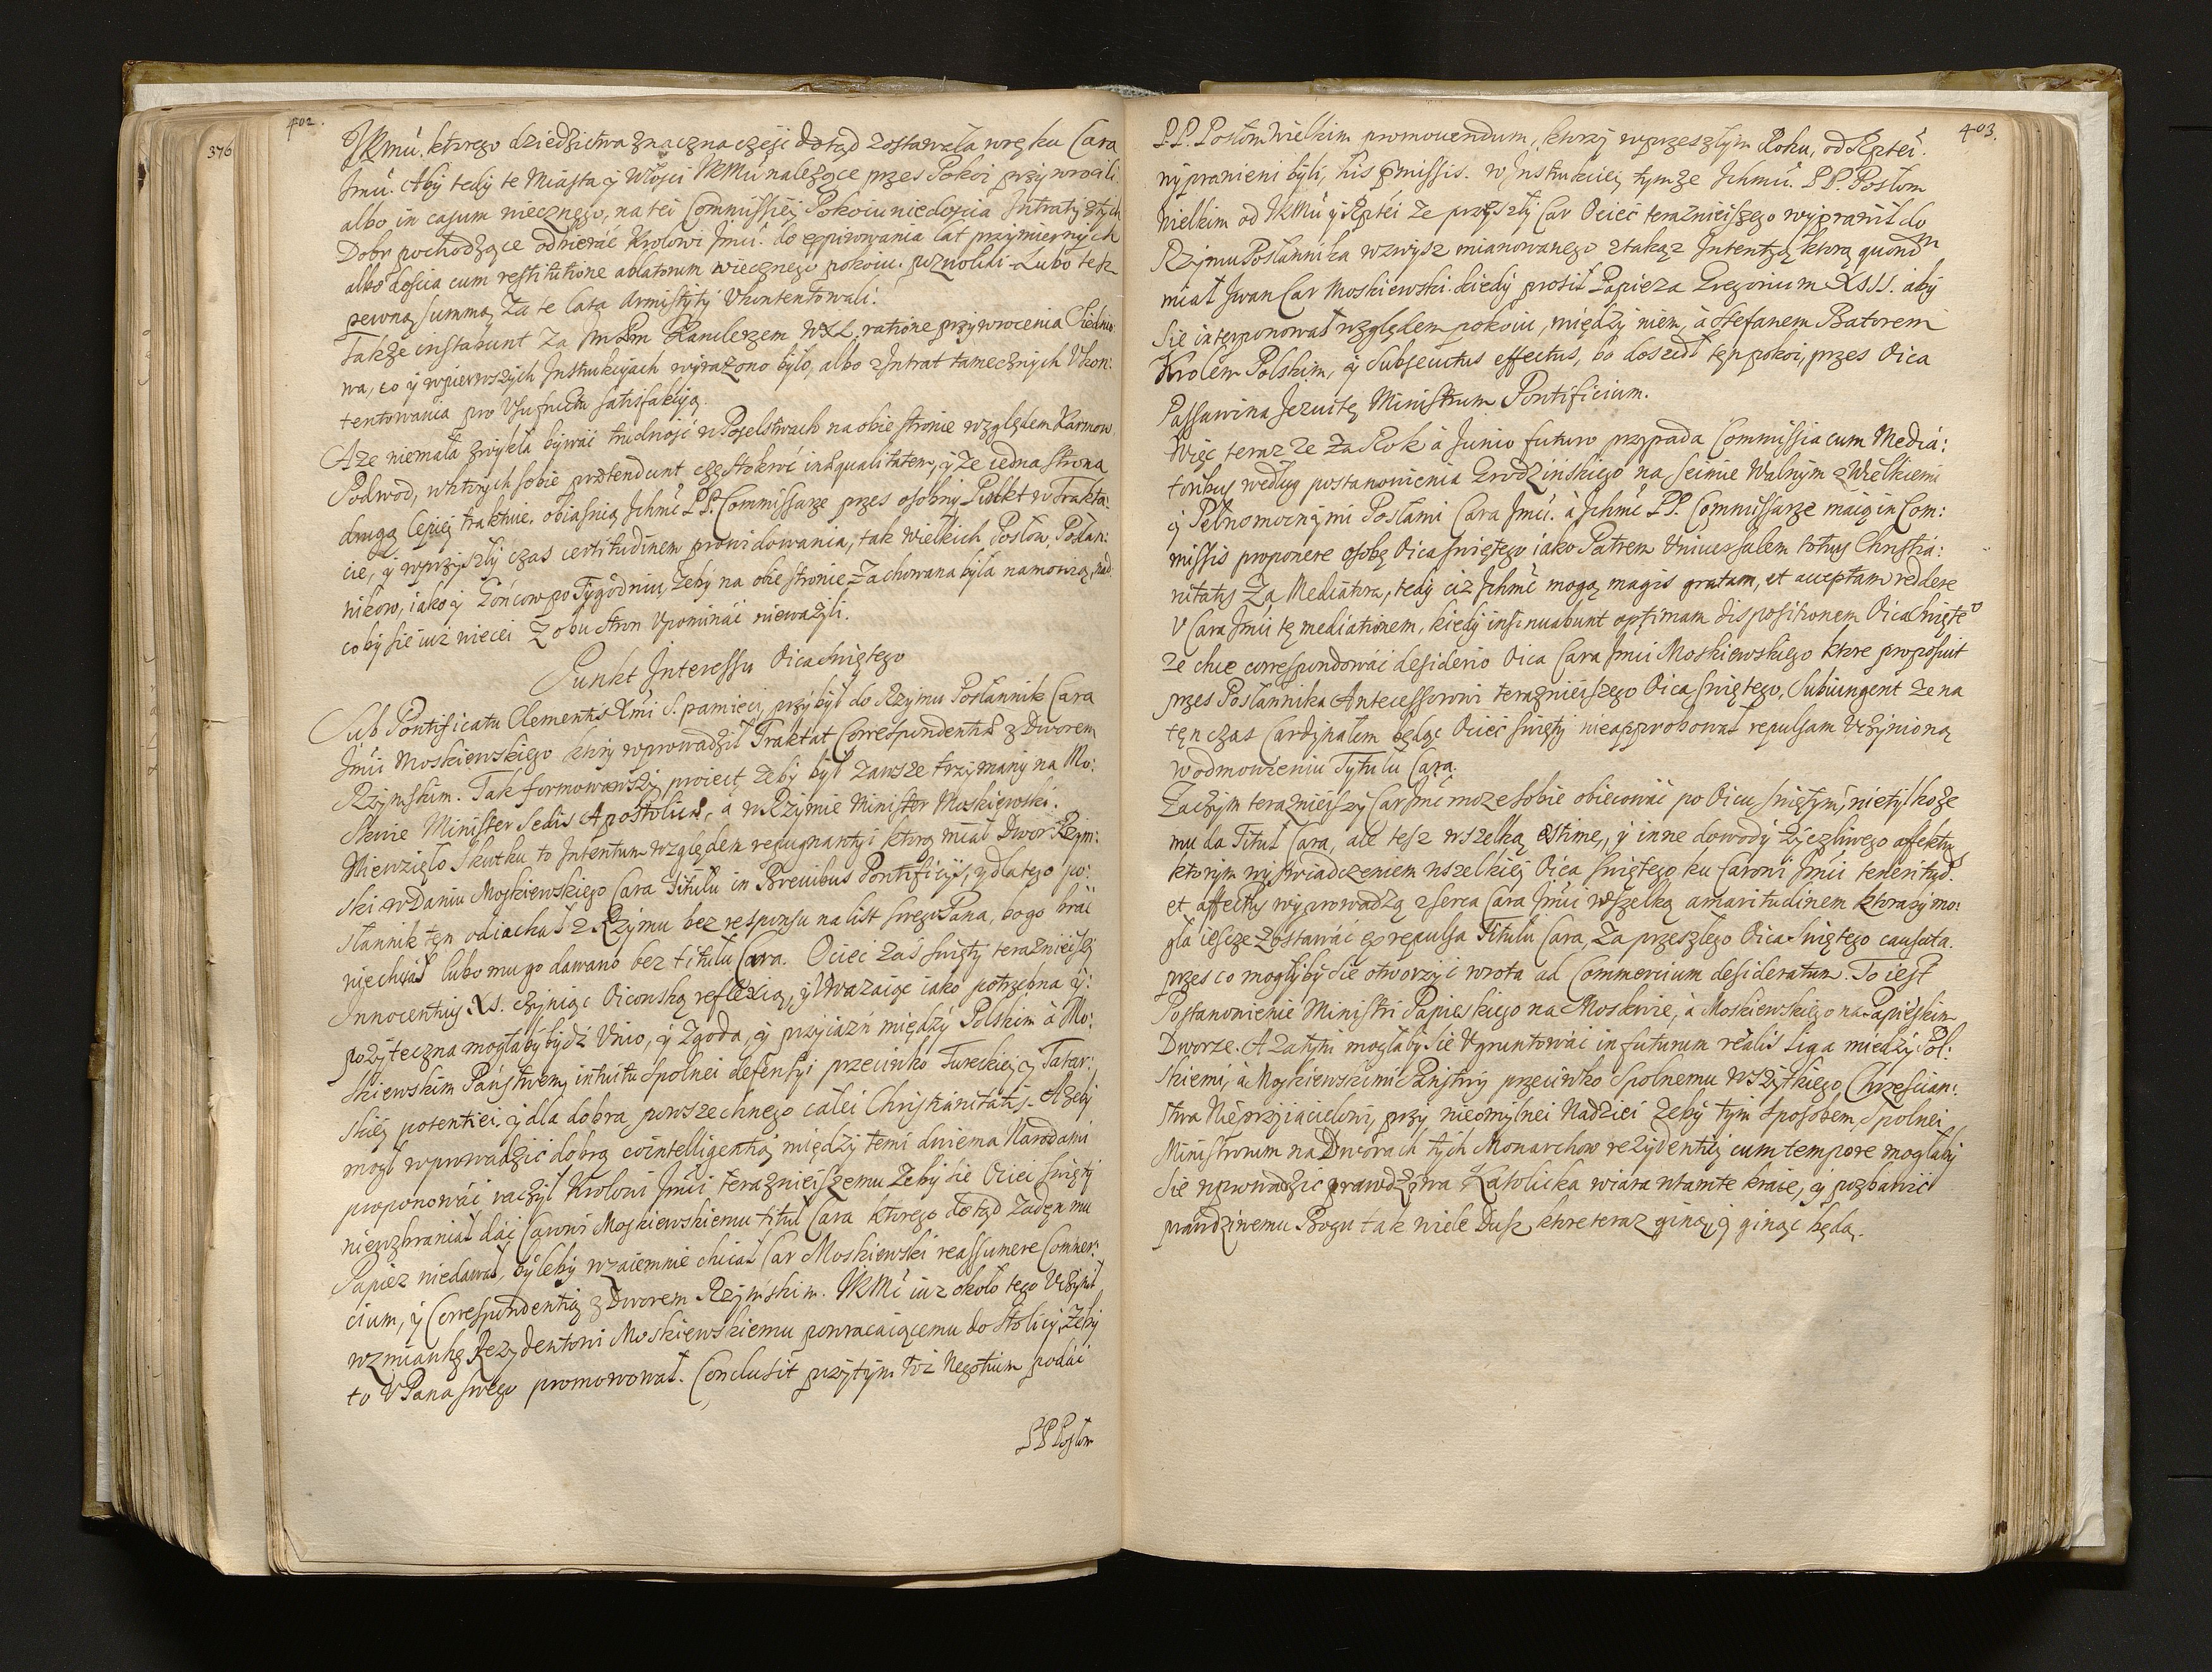 376
402.
JKMći. ktorego dziedzictwa znaczna część dotąd zostawała w ręku Cara
Jmći. Aby tedy te Miasta y Włości JKMći należące przes Pokoi przywrocili
albo in casum wiecznego, na tei Commissiiey Pokoiu niedoiscia Intraty z tych
Dobr pochodzące odbierać Krolowi Jmći. do expirowania lat przymiernych
albo doscia cum restitutione ablatorum wiecznego pokoiu. pozwolili. Lubo tesz
pewną summą za te lata Armistitÿ Vkontentowali.
Także instabunt za Jm Pm Kanclerzem WXL, ratione przywrocenia Siednio:
wa, co y w pierwszych Instrukcyach wyrażono było, albo z Intrat tamecznych Vkon:
tentowania pro Vsufructu satisfakcyą.
A że niemała zwykła bywać trudność w Poselstwach na obie stronie względem Karmow
Podwod, w ktorych sobie prætendunt częstokroć inæqualitatem, y że iedna strona
drugą lepiey traktuie. obiasnią Ichmć PP. Commissarze przes osobny Punkt w Trakta:
cie, y w przyszły czas certitudinem prowidowania, tak wielkich Posłow, Posłan:
nikow, iako y Gońcow po Tygodniu, żeby na obie stronie zachowana była namowią, nad
co by sie iusz wiecei z obu stron Vpominać nieważyli.
Punkt Interessu Oica Swiętego
Sub Pontificatu Clementis Xmi S. pamięci, przybył do Rzymu Posłannik Cara
Jmći Moskiewskiego ktory wprowadził Traktat Correspondentiæ z Dworem
Rzymskim. Tak formowawszy proiect, żeby był zawsze trzymany na Mo:
skwie Minister Sedis Apostolicæ, a w Rzymie Minister Moskiewski.
Niewzięło skutku to Intentum względem repugnantyi ktorą miał Dwor Rzym:
ski w Daniu Moskiewskiego Cara Titułu in Brevibus Pontificijs, y dlatego po:
słannik ten odiachał z Rzymu bez responsu na list swego Pana, bo go brać
niechciał lubo mu go dawano bez titułu Cara. Ociec zaś swięty terazniejszy
Innocentius XI. czyniąc Oicowską reflexią, y Vważaiąc iako potrzebna y:
pożyteczna mogłaby bydź Vnio, y zgoda, y przyiaźń między Polskim à Mo:
skiewskim Państwem, intuitu spolnei defensyi przeciwko Tureckiey y Tatar:
skiey potentiei. y dla dobra powszechnego całei Christianitatis. Ażeby
mogł wprowadzić dobrą cointelligentią między temi dwiema Narodami
proponować raczył Krolowi Jmći terazniejszemu żeby sie Ociec swięty
niewzbraniał dać Carowi Moskiewskiemu titul Cara ktorego dotąd żaden mu
Papież niedawał, byleby wzaiemnie chciał Car Moskiewski reassumere Commer:
cium, y Correspondentią z Dworem Rzymskim. JKMć iuz około tego Vczynił
wzmiankę Rezydentowi Moskiewskiemu powracaiącemu do stolicy, żeby
to V Pana swego promowował. Conclusit przytym toż Negotium podać
PP Posłom
403.
PP. Posłom Wielkim promovendum, ktorzy w przeszłym Roku, od Rptei.
wyprawieni byli, his præmissis. w Instrukciey tymże Ichmći. PP. Posłom
Wielkim od JKMći y Rptei że przeszły Car Ociec terazniejszego wyprawił do
Rzymu Posłannika wzwysz mianowanego z taką z Intentyą ktorą quondm
miał Jwan Car Moskiewski. kiedy prosił Papieza Gregorium XIII. aby
sie interponował względem pokoiu, między niem, à Stefanem Batorem
Krolem Polskim, y subsecutus effectus, bo doszedł ten pokoi, przes Oica
Possawina Jezuitę Ministrum Pontificium.
Więc teraz ze za Rok à Junio futuro przypada Commissia cum Media:
toribus według postanowienia Grodzińskiego na Seimie Walnym z Wielkiemi
y Pełnomocnymi Posłami Cara Jmći. à Ichmć PP. Commissarze maią in Com:
missis proponere osobę Oica swiętego iako Patrem Vniversalem totius Christia:
nitatis za Mediatora, tedy ciż Ichmć mogą magis gratam, et acceptam reddere
V Cara Jmći tę mediationem, kiedy insinuabunt optimam dispositionem Oica Swięteo
że chce correspondować desiderio Oica Cara Jmći Moskiewskiego ktore proposuit
przes Posłannika Antecessorowi terazniejszego Oica swiętego, subiungent że na
ten czas Cardynałem będąc Ociec swięty nieapprobował repulsam Vczynioną
w odmowieniu Tytułu Cara.
Zaczym terazniejszy Car Jmć może sobie obiecować po Oicu swiętym, nie tylko że
mu da Tituł Cara, ale tesz wszelką æstimę, y inne dowody życzliwego affektu
ktorym wyswiadczeniem wszelkiey Oica swiętego ku Carowi Jmći teneritud.
et affectus wyprowadzą z serca Cara Jmći wszelką amaritudinem ktoraby mo:
gła ieszcze zostawać ex repulsa Titułu Cara, za przeszłego Oica Swiętego causata.
przes co mogłyby sie otworzyć wrota ad Commercium desideratum. To iest
Postanowienie Ministri Papieskiego na Moskwie, à Moskiewskiego na Papieskim
Dworze. A zatym mogłaby sie Vgruntować in futurum realis Liga między Pol:
skiemi, à Moskiewskimi Państwy przeciwko spolnemu wszytkiego Chrzescian:
stwa Nieprzyiacielowi, przy nieomylnei Nadziei żeby tym sposobem, spolnei
Ministrorum na Dworach tych Monarchow rezydentiey cum tempore mogłaby
sie wprowadzić prawdziwa Katolicka wiara w tamte kraie, y pozbawić
prawdziwemu Bogu tak wiele Dusz, ktore teraz giną, y ginąc będą.